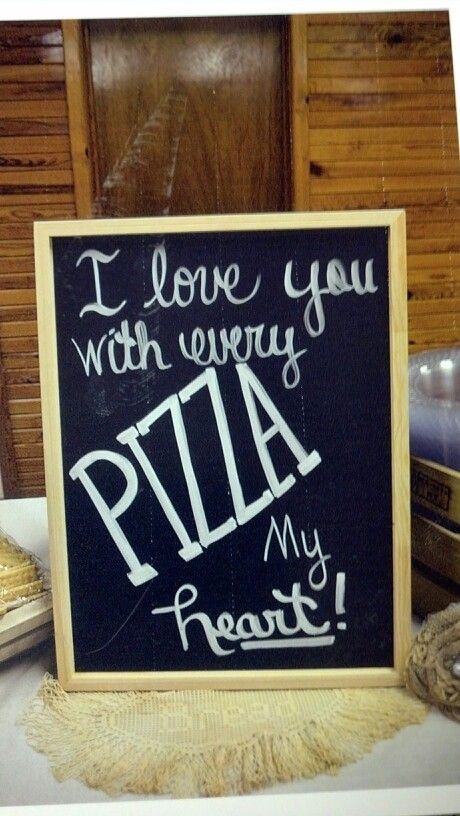 I love you
with every
PIZZA
My
heart!